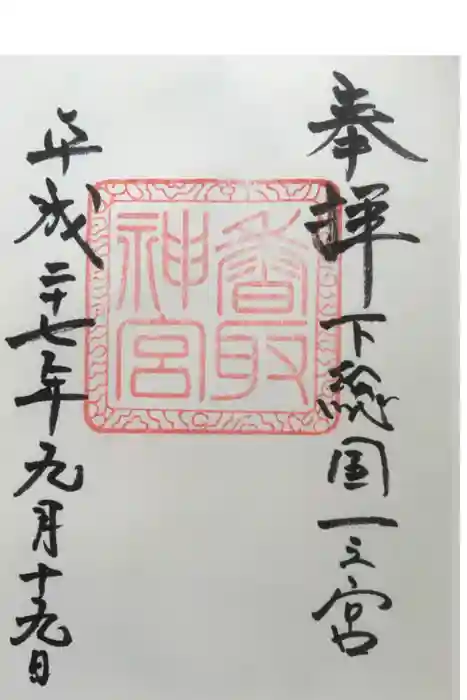 奉拝 下総国一之宮
香取
神宮
平成二十七年九月十九日